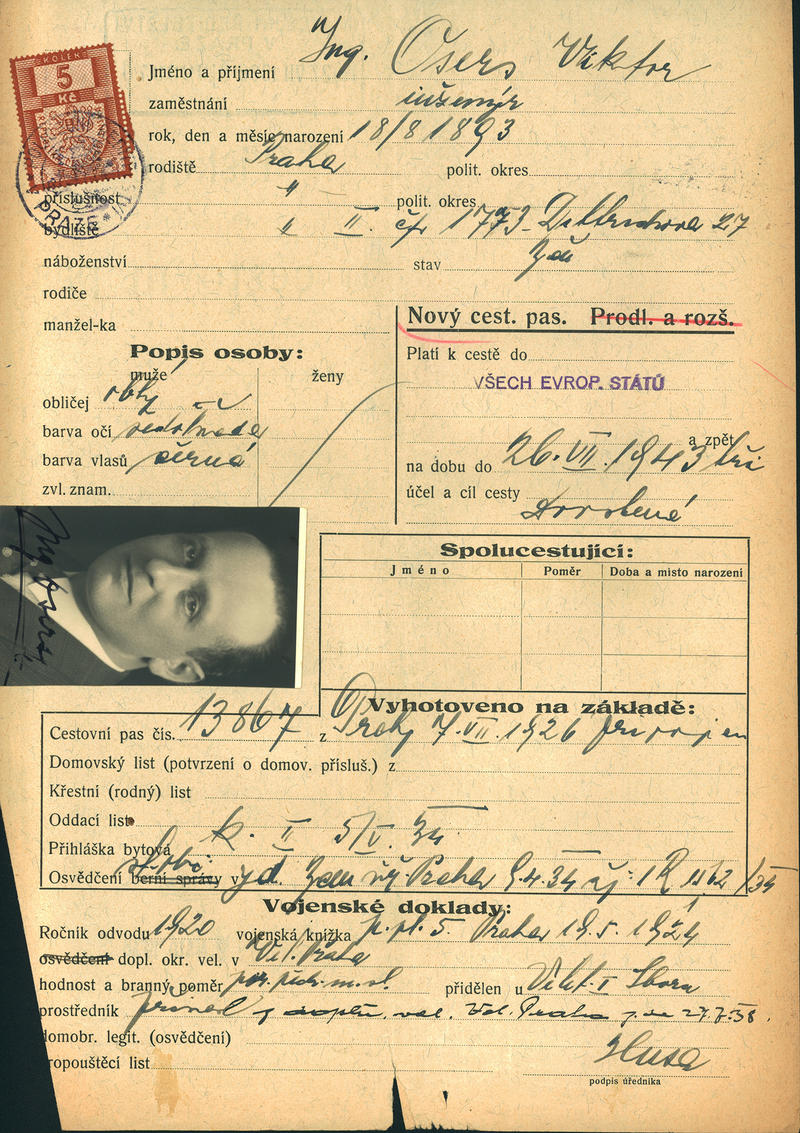 KOLEK
5
Kč
PRAZE
Jméno a příjmení Ing. Osers Viktor
zaměstnání inženýr
rok, den a měsíc narození 18/8 1893
rodiště Praha polit. okres
příslušnost " polit. okres
bydliště " II. čp 1773 - Dittrichova 27
náboženství stav žen
rodiče
manžel-ka
Popis osoby:
muže ženy
obličej obl
barva očí
barva vlasů černá
zvl. znam.
Nový cest. pas. Prodl. a rozš.
Platí k cestě do
VŠECH EVROP. STÁTŮ
a zpět
na dobu do 26. VII. 1943 tři
účel a cíl cesty
Ing Osers
Spolucestující:
Jméno Poměr Doba a místo narození
Vyhotoveno na základě:
Cestovní pas čís. 13867 z Prahy 7. VII. 1926
Domovský list (potvrzení o domov. přísluš.) z
Křestní (rodný) list
Oddací list
Přihláška bytová k. II 5/V. 34
Osvědčení berní správy v Praha 9.4.34 čj: 1 R
Vojenské doklady:
Ročník odvodu 1920 vojenská knížka p. pl. 5. Praha 19. 5. 1924
osvědčení dopl. okr. vel. v Praha
hodnost a branný poměr přidělen u Velit. I Sboru
prostředník z doplň. vel. Vel. Praha z 27.7.38.
domobr. legit. (osvědčení)
propouštěcí list
Husa
podpis úředníka